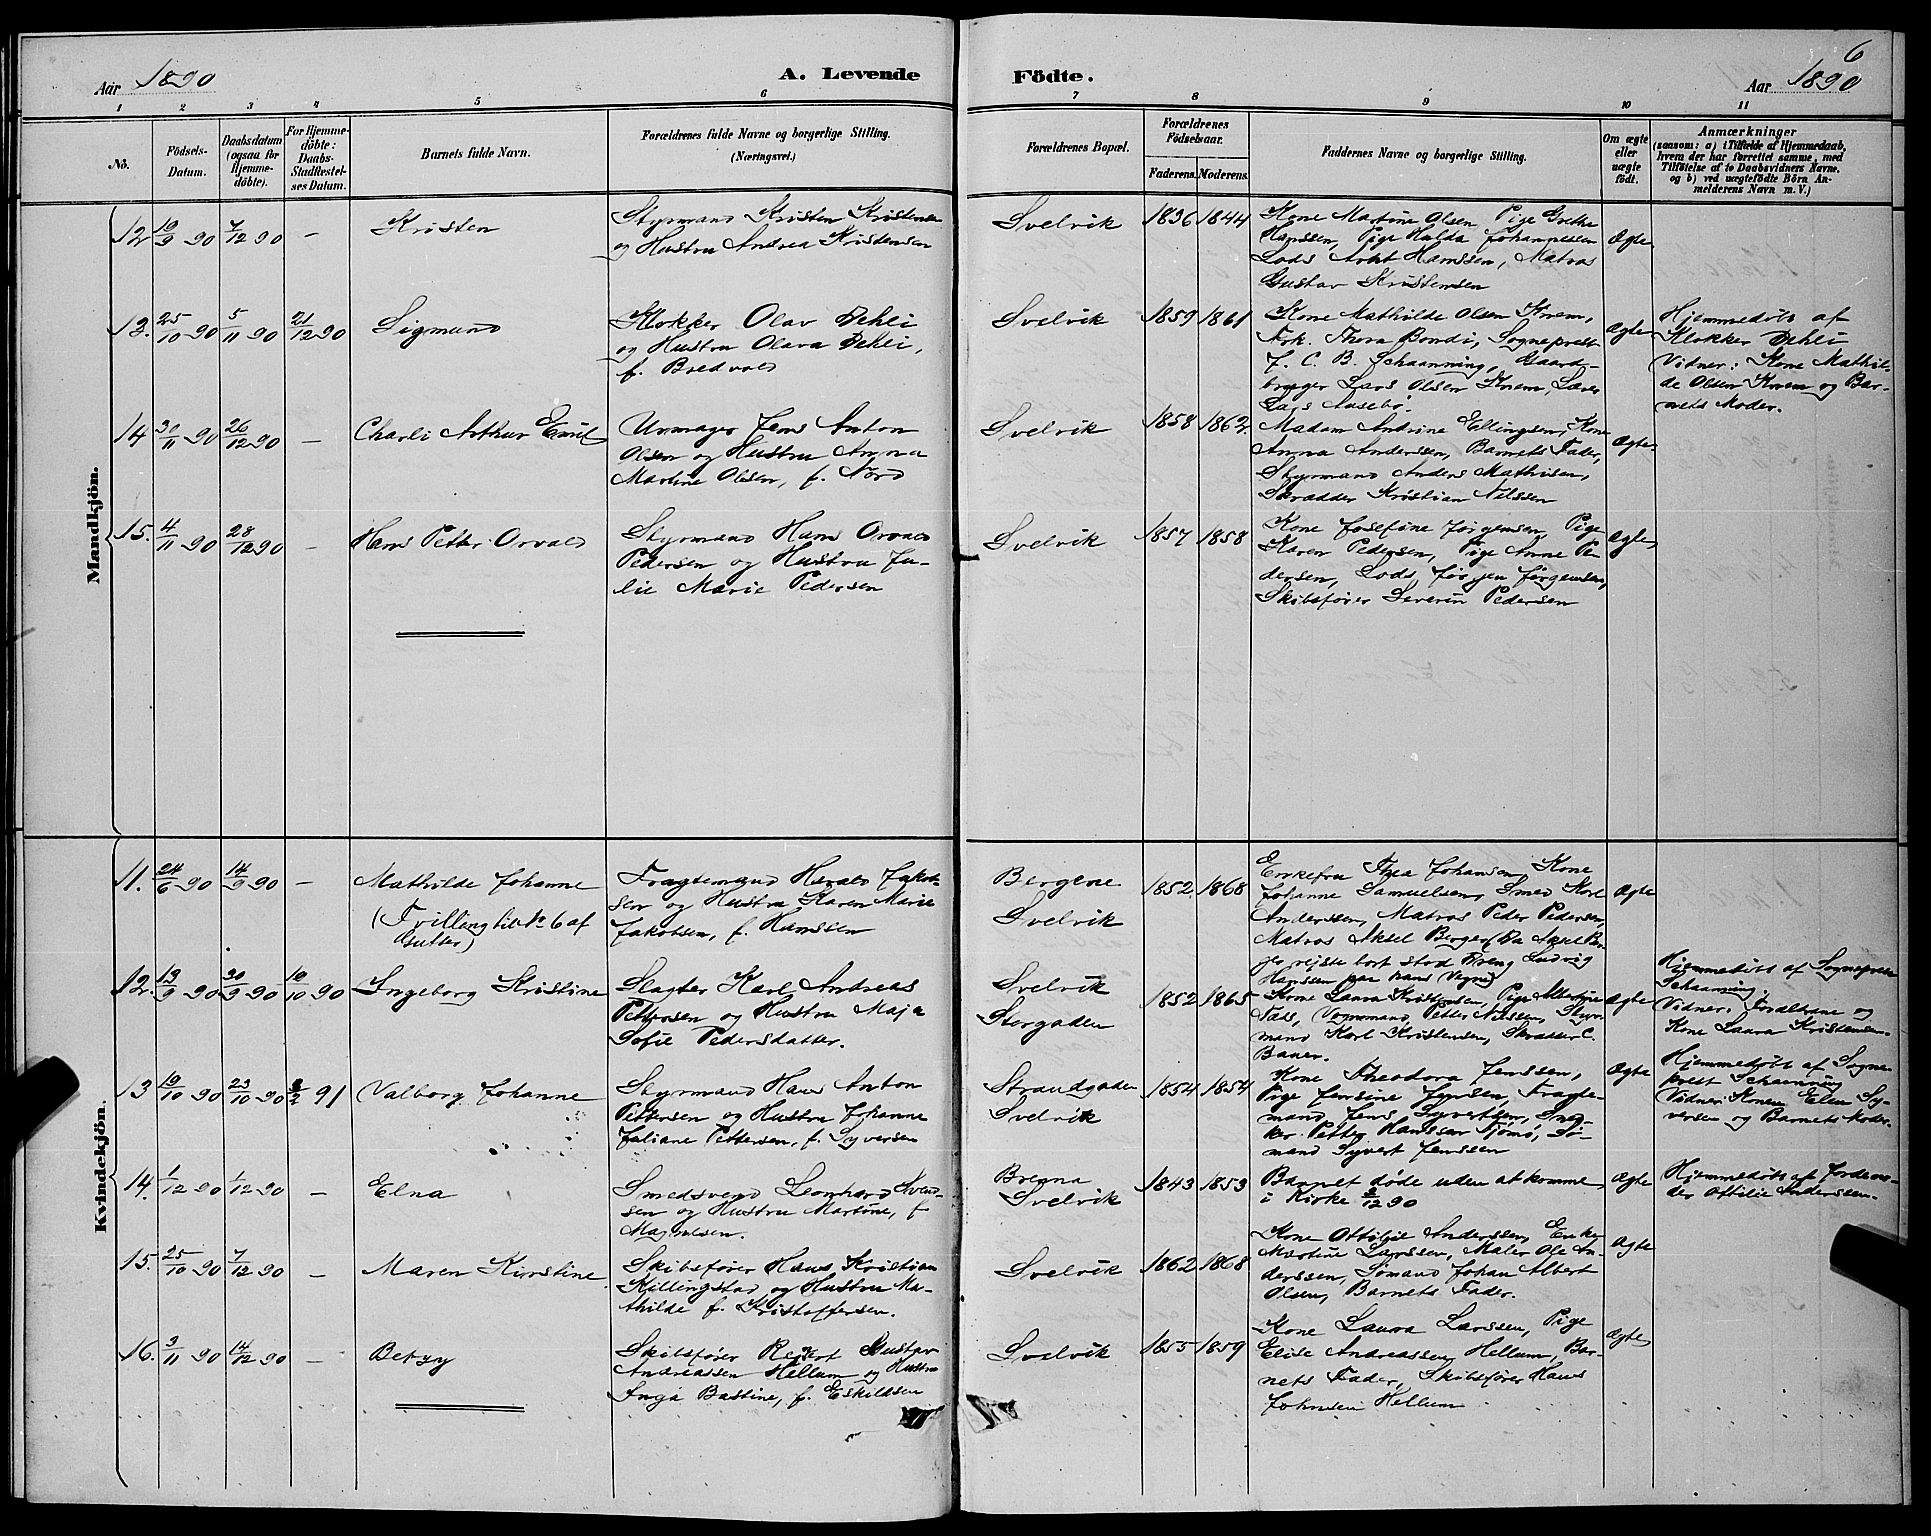 6
Aar 1890
A. Levende
Födte.
Aar 1890
1 2 3 4 5 6
7 8 9 10 11
No.
Födsels-
Datum.
Daabsdatum
(ogsaa for
Hjemme-
döbte).
For Hjemme-
döbte:
Daabs-
Stadfæstel-
ses Datum.
Barnets fulde Navn.
Forældrenes fulde Navne og borgerlige Stilling.
(Næringsvei.)
Forældrenes Bopæl.
Forældrenes
Födselsaar.
Faderens. Moderens.
Faddernes Navne og borgerlige Stilling.
Om ægte
eller
uægte
født.
Anmærkninger
(saasom: a) i Tilfælde af Hjemmedaab,
hvem der har forrettet samme, med
Tilføielse af to Daabsvidners Navne.
og b) ved uægtefödte Börn An-
melderens Navn m. V.)
Mandkjön.
12 19/9 90 7/12 90 - Kristen
Styrmand Kristen Kristensen
og Hustru Andrea Kristensen
Svelvik 1836 1844
Kone Martine Olsen, Pige Grethe
Hanssen, Pige Hulda Johannesen
Lods Arnt Hanssen, Matros
Gustav Kristensen
Ægte
13. 25/10 90 5/11 90 21/12 90 Sigmund
Klokker Olav Dehli
og Hustru Olava Dehli,
f. Bredvold
Svelvik 1859 1861
Kone Mathilde Olsen Knem,
Frk. Thora Bondi, Sogneprest
J. C. B. Schaanning, Gaard-
bruger Lars Olsen Knem, Lærer
Lars Aasebø.
Ægte
Hjemmedöbt af
Klokker Dehli
Vidner: Kone Mathil-
de Olsen Knem og Bar-
nets Moder.
14 30/11 90 26/12 90 - Charli Arthur Emil
Urmager Jens Anton
Olsen og Hustru Anna
Martine Olsen, f. Nord
Svelvik 1858 1862.
Madam Andrine Ellingsen, Kone
Anna Anderssen, Barnets Fader,
Styrmand Anders Mathisen,
Skrædder Kristian Nilssen
Ægte
15. 4/11 90 28/12 90 - Hans Petter Orvald
Styrmand Hans Orvald
Pedersen og Hustru Ju-
lie Marie Pedersen
Svelvik 1857 1858
Kone Josefine Jørgensen, Pige
Karen Pedersen, Pige Anne Pe-
dersen, Lods Jørgen Jørgensen,
Skibsfører Severin Pedersen
Ægte
Kvindekjön.
11. 24/6 90 14/9 90 - Mathilde Johanne
(Tvilling til No 6 af
Gutter)
Fragtemand Harald Jakob-
sen og Hustru Karen Marie
Jakobsen, f. Hanssen
Bergene
Svelvik
1852. 1868
Enkefru Thea Johansen, Kone
Johanne Samuelsen, Smed Karl
Anderssen, Matros Peder Pedersen,
Matros Aksel Berger (Da Aksel Ber-
ger reiste bort stod Dreng Ludvig
Hanssen paa hans Vegne)
Ægte
12. 13/9 90 30/9 90 19/10 90 Ingeborg Kristine
Slagter Karl Andreas
Pettersen og Hustru Maja
Sofie Pedersdatter.
Svelvik
Storgaden
1852 1865
Kone Laura Kristensen, Pige Albertine
Næss, Vognmand Petter Nilssen, Styr-
mand Karl Kristensen, Skrædder C.
Bauer.
Ægte
Hjemmedöbt af Sogneprest
Schaanning.
Vidner: Forældrene og
Kone Laura Kristensen.
13 19/10 90 23/10 90 8/2 91 Valborg Johanne
Styrmand Hans Anton
Pettersen og Hustru Johanne
Juliane Pettersen, f. Syversen
Strandgaden
Svelvik
1854 1854
Kone Theodora Jenssen,
Pige Jensine Jenssen, Fragte-
mand Jens Syvertsen, Sned-
ker Petter Hanssen Tjømø, Sø-
mand Syvert Jenssen
Ægte
Hjemmedöbt af Sogne-
prest Schaanning
Vidner: Konen Elen Sy-
versen og Barnets Moder.
14. 1/12 90 1/12 90 - Elna
Smedsvend Leonhard Svend-
sen og Hustru Martine, f.
Magnussen.
Brenna
Svelvik
1843 1853
Barnet døde uden at komme
i Kirke 2/12 90
Ægte
Hjemmedöbt af Jordemo-
der Ottilie Anderssen.
15. 25/10 90 7/12 90 - Maren Kirstine
Skibsfører Hans Kristian
Killingstad og Hustru Ma-
thilde f. Kristoffersen.
Svelvik 1862 1868
Kone Ottilie Anderssen, Enke
Martine Larssen, Maler Ole An-
derssen, Sømand Johan Albert
Olsen, Barnets Fader.
Ægte
16. 3/11 90 14/12 90 - Betzy
Skibsfører Reiert Gustav
Andreassen Hellum og Hustru
Inga Bastine, f. Eskildsen
Svelvik 1855 1859
Kone Laura Larssen, Pige
Elise Andreassen Hellum, Bar-
nets Fader, Skibsfører Hans
Johnsen Hellum
Ægte